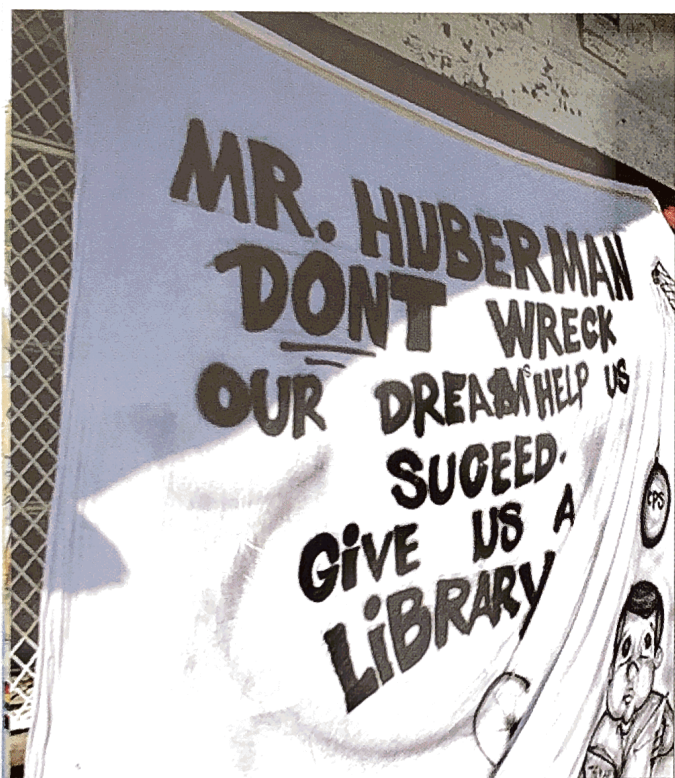 MR. HUBERMAN
DONT WRECK
OUR DREAMS HELP US
SUCEED.
GIVE US A
LIBRARY
CPS